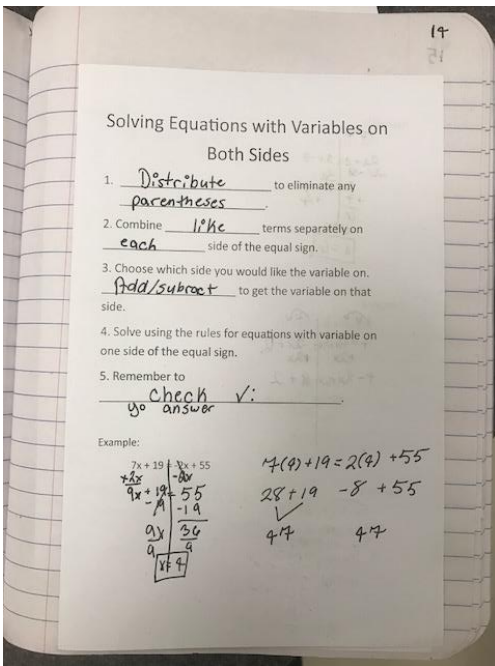 14
Solving Equations with Variables on
Both Sides
1. Distribute to eliminate any
parentheses.
2. Combine like terms separately on
each side of the equal sign.
3. Choose which side you would like the variable on.
Add/subract to get the variable on that
side.
4. Solve using the rules for equations with variable on
one side of the equal sign.
5. Remember to
check ✓:
yo answer
Example:
7x + 19 = -2x + 55
+2x
9x + 19 = 55
-19 -19
9x 36
9 9
x = 4
7(4)+19 = 2(4) +55
28+19 -8 +55
47 47